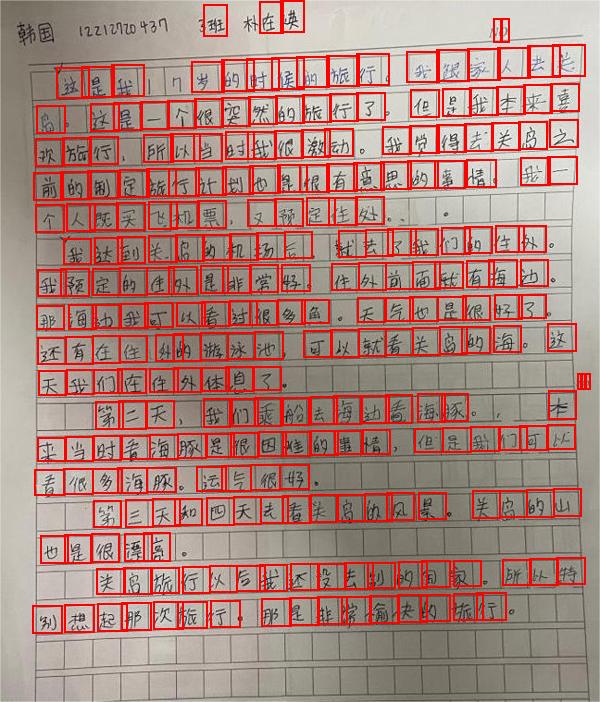 韩国 12212720437 3班 朴在英
NO
这是我17岁的时候的旅行。我跟家人去关
岛。这是一个很突然的旅行了。但是我本来喜
欢旅行，所以当时我很激动。我觉得去关岛之
前的制定旅行计划也是很有意思的事情。我一
个人既买飞机票，又预定住处。
我达到关岛的机场后，就去了我们的住处。
我预定的住处是非常好。住处前面就有海边。
那海边我可以看过很多鱼。天气也是很好了。
还有在住处的游泳池，可以就看关岛的海。这
天我们在住处休息了。
第二天，我们乘船去海边看海豚。本
来当时看海豚是很困难的事情，但是我们可以
看很多海豚。运气很好。
第三天和四天去看关岛的风景。关岛的山
也是很漂亮。
关岛旅行以后我还没去别的国家。所以特
别想起那次旅行。那是非常愉快的旅行。